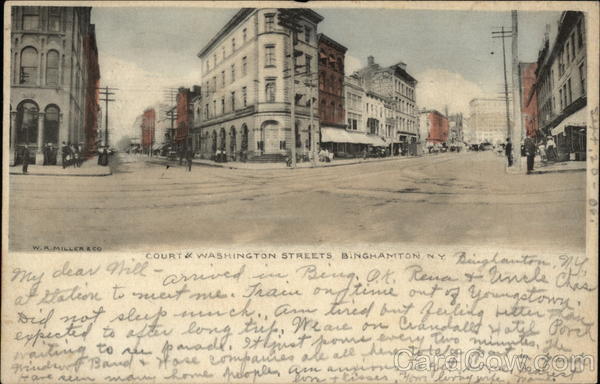 W. R. MILLER & CO
COURT & WASHINGTON STREETS, BINGHAMTON, N.Y.
Binghamton, N.Y.
My dear Will - arrived in Bing. O.K. Rena & Uncle Chas
at Station to meet me. Train on time out of Youngstown.
Did not sleep much. Am tired out feeling better than
expected to after long trip. We are on Crandalls Hotel Porch
waiting to see parade. It just pours every two minutes, the
Windsor Band & Hose companies are all here
Have seen many home people. Am anxious
love & kisses. Your loving wife
CardCow.com